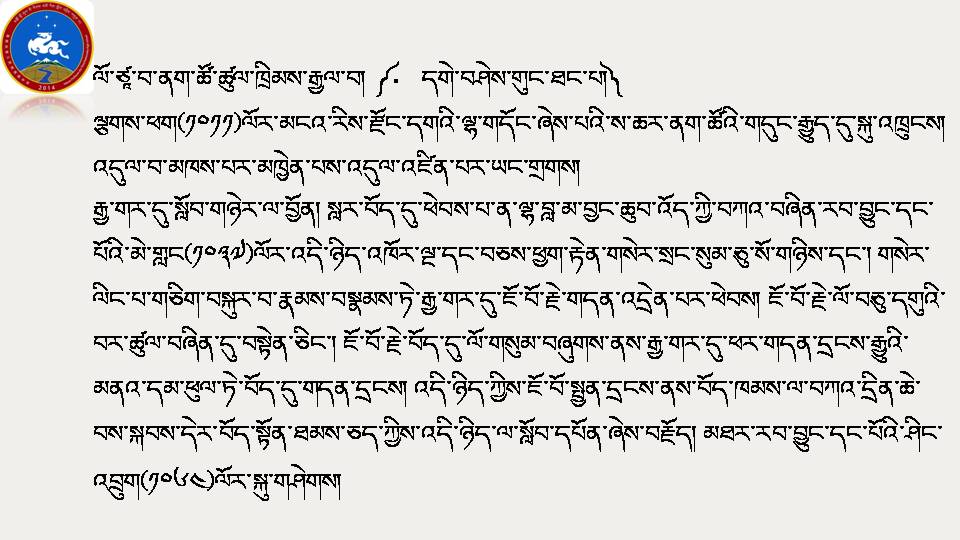 ལོ་ཙཱ་བ་ནག་ཚོ་ཚུལ་ཁྲིམས་རྒྱལ་བ། ༼. དགེ་བཤེས་གུང་ཐང་པ༽
ལྕགས་ཕག(༡༠༡༡)ལོར་མངའ་རིས་རྫོང་དགའི་ལྷ་གདོང་ཞེས་པའི་ས་ཆར་ནག་ཚོའི་གདུང་རྒྱུད་དུ་སྐུ་འཁྲུངས།
འདུལ་བ་མཁས་པར་མཁྱེན་པས་འདུལ་འཛིན་པར་ཡང་གྲགས།
རྒྱ་གར་དུ་སློབ་གཉེར་ལ་བྱོན། སླར་བོད་དུ་ཕེབས་པ་ན་ལྷ་བླ་མ་བྱང་ཆུབ་འོད་ཀྱི་བཀའ་བཞིན་རབ་བྱུང་དང་
པོའི་མེ་གླང(༡༠༣༧)ལོར་འདི་ཉིད་འཁོར་ལྔ་དང་བཅས་ཕྱག་རྟེན་གསེར་སྲང་སུམ་ཅུ་སོ་གཉིས་དང་། གསེར་
ལིང་པ་གཅིག་བསྐུར་བ་རྣམས་བསྣམས་ཏེ་རྒྱ་གར་དུ་ཇོ་བོ་རྗེ་གདན་འདྲེན་པར་ཕེབས། ཇོ་བོ་རྗེ་ལོ་བཅུ་དགུའི་
བར་ཚུལ་བཞིན་དུ་བསྟེན་ཅིང་། ཇོ་བོ་རྗེ་བོད་དུ་ལོ་གསུམ་བཞུགས་ནས་རྒྱ་གར་དུ་ཕར་གདན་དྲངས་རྒྱུའི་
མནའ་དམ་ཕུལ་ཏེ་བོད་དུ་གདན་དྲངས། འདི་ཉིད་ཀྱིས་ཇོ་བོ་སྤྱན་དྲངས་ནས་བོད་ཁམས་ལ་བཀའ་དྲིན་ཆེ་
བས་སྐབས་དེར་བོད་སྟོན་ཐམས་ཅད་ཀྱིས་འདི་ཉིད་ལ་སློབ་དཔོན་ཞེས་བརྗོད། མཐར་རབ་བྱུང་དང་པོའི་ཤིང་
འབྲུག(༡༠༦༤)ལོར་སྐུ་གཤེགས།
2014